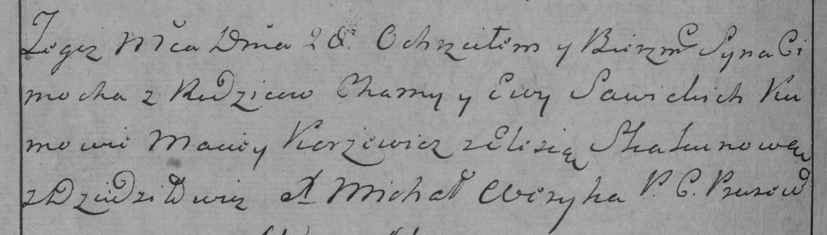 Tegoż Mca Dnia 28. Ochrzciłem y Bierzm Syna Ci
mocha z Rodzicow Chamy y Ewy Sawickich Ku
mowie Maciey Korzewicz z Elisią Skakunową
z Dziedziłowicz X Michał Weryha P. C.